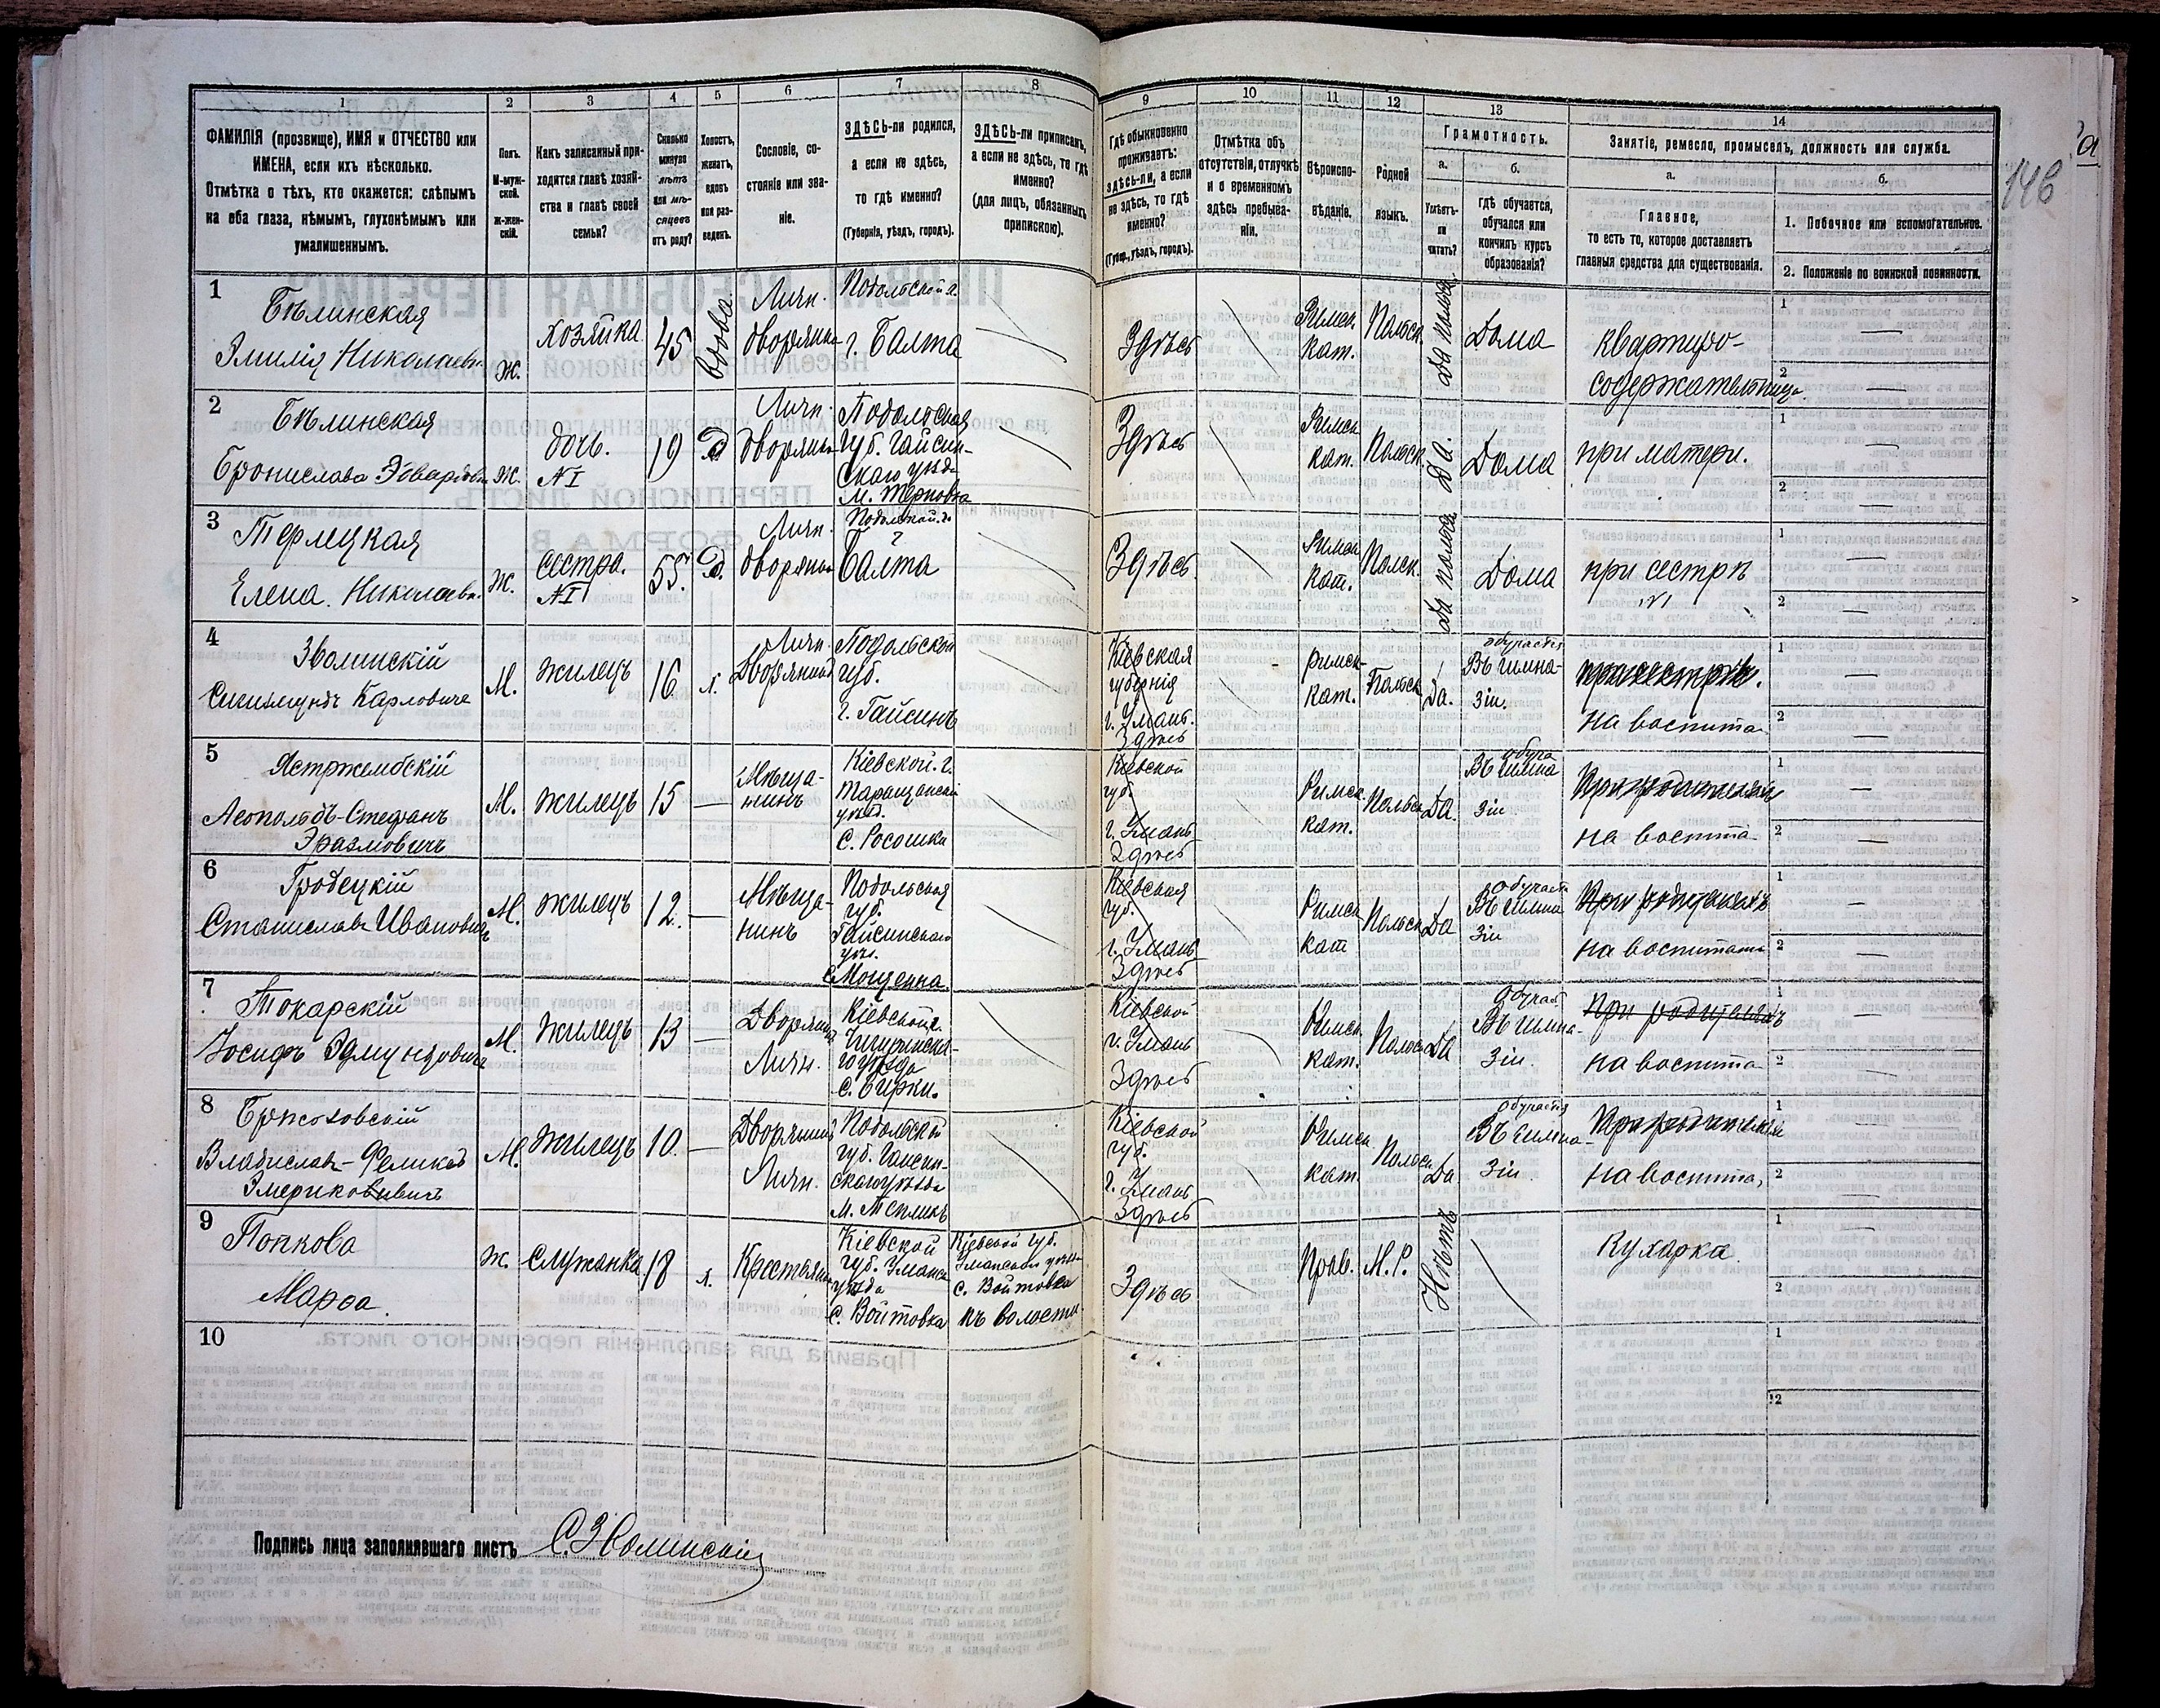 1 2 3 4 5 6 7 8 9 10 11 12 13 14
ФАМИЛІЯ (прозвище), ИМЯ и ОТЧЕСТВО или
ИМЕНА, если ихъ нѣсколько.
Отмѣтка о тѣхъ, кто окажется: слѣпымъ
на оба глаза, нѣмымъ, глухонѣмымъ или
умалишеннымъ.
Полъ.
М-муж-
ской.
ж-жен-
скій.
Какъ записанный при-
ходится главѣ хозяй-
ства и главѣ своей
семьи?
Сколько
минуло
лѣтъ
или мѣ-
сяцевъ
отъ роду?
Холостъ,
женатъ,
вдовъ
или раз-
веденъ.
Сословіе, со-
стояніе или зва-
ніе.
ЗДѢСЬ-ли родился,
а если не здѣсь,
то гдѣ именно?
(Губернія, уѣздъ, городъ).
ЗДѢСЬ-ли приписанъ,
а если не здѣсь, то гдѣ
именно?
(Для лицъ, обязанныхъ
припискою).
Гдѣ обыкновенно
проживаетъ:
здѣсь-ли, а если
не здѣсь, то гдѣ
именно?
(Губер., уѣздъ, городъ).
Отмѣтка объ
отсутствіи, отлучкѣ
и о временномъ
здѣсь пребыва-
ніи.
Вѣроиспо-
вѣданіе.
Родной
языкъ.
Грамотность.
а.
Умѣетъ-
ли
читать?
б.
гдѣ обучается,
обучался или
кончилъ курсъ
образованія?
Занятіе, ремесло, промыселъ, должность или служба.
а.
Главное,
то есть то, которое доставляетъ
главныя средства для существованія.
б.
1. Побочное или вспомогательное.
2. Положеніе по воинской повинности.
146
1
Бѣлинская
Эмилія Николаевн.
Ж.
хозяйка
45
вдова
Личн.
дворянка
Подольской г.
г. Балта
Здѣсь
Римск.
кат.
Польск.
Да польск.
Дома
квартиро-
содержательница
1
2
2
Бѣлинская
Бронислава
Ж.
дочь.
N I
19
Д
Личн.
дворянка
Подольская
губ. Гайсин-
скаго уѣзда
м. Терновка
Здѣсь
Римск
кат.
Польск.
Да.
Дома
при матери.
1
2
3
Терлецкая
Елена. Николаевн.
Ж.
сестра.
N I
55.
Д.
Личн.
дворянка
Подольской г.
Балта
Здѣсь
Римск
кат.
Польск.
Да польск.
Дома
при сестрѣ
N 1
1
2
4
Зволинскій
Сигизмундъ Карловичъ
М.
жилецъ
16
х.
Личн.
Дворянинъ
Подольской
губ.
г. Гайсинъ
Кіевская
губернія
г. Умань.
Здѣсь
римск-
кат.
Польск
Да.
обучается
Въ гимна-
зіи.
при сестрѣ.
на воспита
1
2
5
Ястржембскій
Леопольдъ-Стефанъ
Эразмовичъ
М.
жилецъ
15
Мѣща-
нинъ
Кіевской. г.
Таращанскій
уѣзд.
с. Росошки
Кіевской
губ.
г. Умань
Здѣсь
Римск
кат.
Польск
Да.
обуча
Въ гимна
зіи
на воспита
1
2
6
Гродецкій
Станиславъ Ивановичъ
М.
жилецъ
12.
Мѣща-
нинъ
Подольская
губ.
Гайсинскаго
уѣз.
Кіевская
губ.
г. Умань
Здѣсь
Римск
кат
Польск
Да
обучает
Въ гимна
зіи
При родителяхъ
на воспитани
1
2
7
Токарскій
Іосифъ Эдмундовичъ
М.
жилецъ
13
Дворянинъ
Личн.
Кіевской г.
Чигиринска-
го уѣзда
с. Бирки.
Кіевской
г. Умань
Здѣсь
Римск.
кат.
Польск
Да
обучает
Въ гимна-
зіи.
При родителяхъ
на воспита
1
2
8
Бржозовскій
Владиславъ-Феликсъ
Эмериковичъ
М.
жилецъ
10.
Дворянинъ
Личн.
Подольской
губ. Гайсин-
скаго уѣзда
м. Тепликъ
Кіевской
губ.
г. Умань
Здѣсь
Римск
кат.
Польск
Да
обучается
Въ гимна-
зіи.
на воспита,
1
2
9
Попкова
Марѳа.
Ж.
служанка
18
х.
Крестьянка
Кіевской
губ. Уманск
уѣзда
с. Войтовка
Кіевской губ.
Уманскаго уѣзда
с. Войтовка
Здѣсь
Прав.
М. Р.
Нѣтъ
Кухарка
1
2
10
1
2
Подпись лица заполнявшаго листъ С. Зволинскій